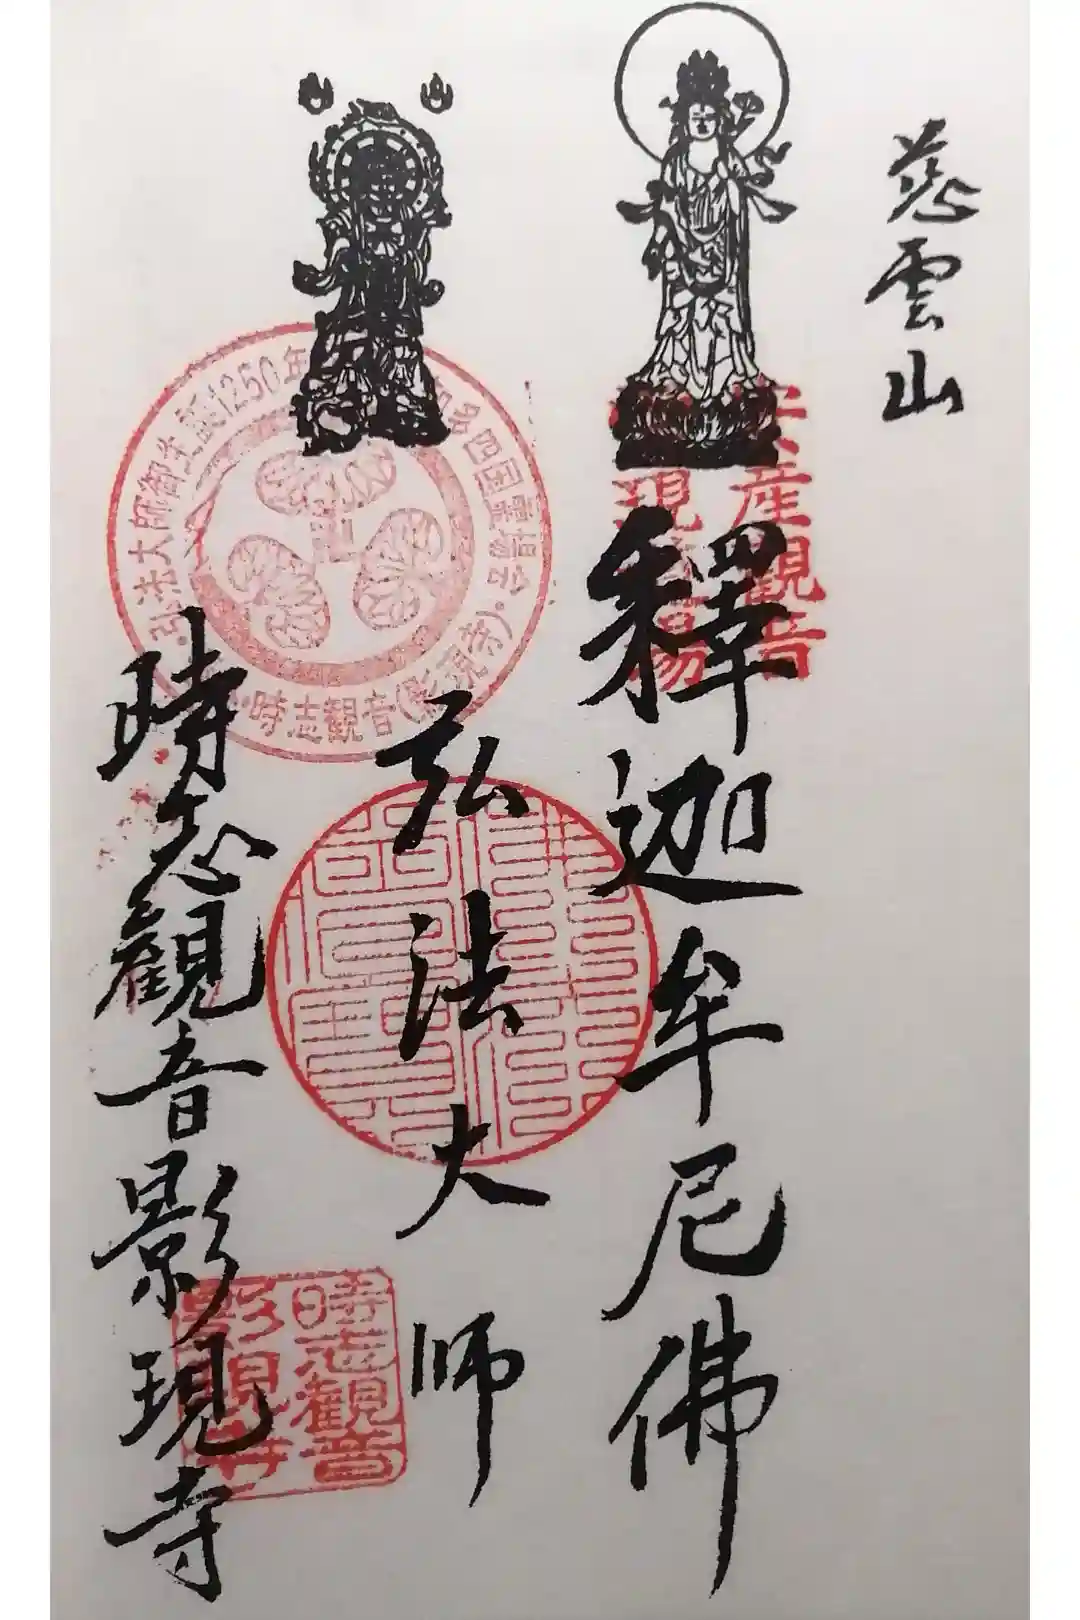 慈雲山
釋迦牟尼佛
弘法大师
時志觀音影現寺
産観音
現
場
弘法大師御生誕1250年
四国霊場会
時志観音(影現寺)
時志観音
影現寺